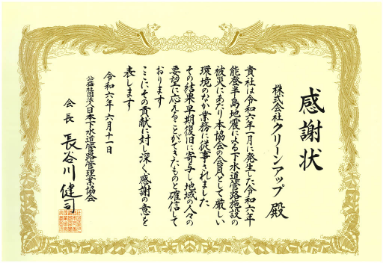 感謝状
株式会社クリーンアップ 殿
貴社は令和六年一月に発生した令和六年
能登半島地震による下水道管路施設の
被災にあたり本協会の会員として厳しい
環境のなか業務に従事されました
その結果早期復旧に寄与し地域の人々の
要望に応えることができたものと確信して
おります
ここにその貢献に対し深く感謝の意を
表します
令和六年六月十一日
公益社団法人日本下水道管路管理業協会
会長 長谷川健司